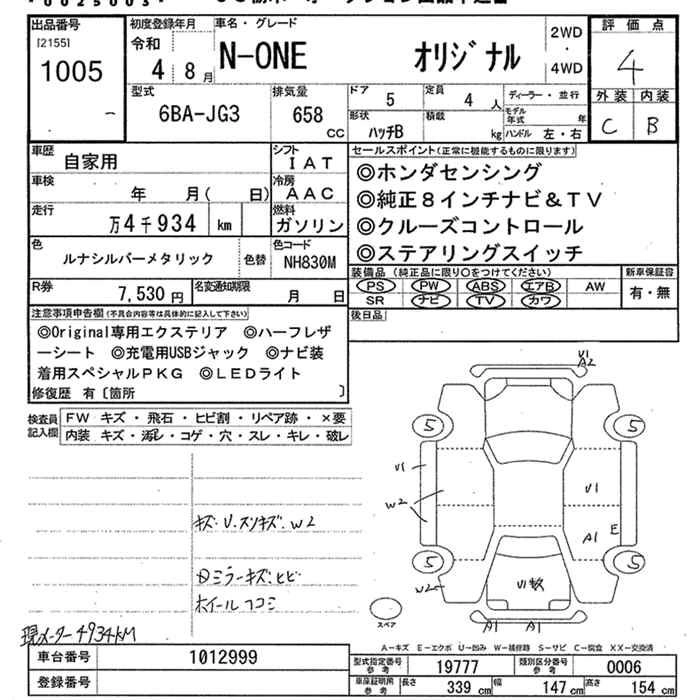 出品番号
[2155]
1005
初度登録年月
令和
4 8月
車名・グレード
N-ONE オリジナル
2WD
・
4WD
評価点
4
型式
6BA-JG3
排気量
658
CC
ドア
5
定員
4 人
ディーラー・並行
外装 内装
C B
形状
ハッチB
積載
kg
モデル年式
年
ハンドル 左・右
車歴
自家用
シフト
IAT
セールスポイント(正常に機能するものに限ります)
◎ホンダセンシング
◎純正8インチナビ&TV
◎クルーズコントロール
◎ステアリングスイッチ
車検
年 月( 日)
冷房
AAC
走行
万4千934 km
燃料
ガソリン
色
ルナシルバーメタリック
色替
色コード
NH830M
装備品 (純正品に限り○をつけてください)
新車保証書
PS PW ABS エアB AW
有・無
SR ナビ TV カワ
R券
7,530 円
名変通知期限
月 日
後日品
注意事項申告欄(不具合内容等は具体的に記入して下さい)
◎Original専用エクステリア ◎ハーフレザ
ーシート ◎充電用USBジャック ◎ナビ装
着用スペシャルPKG ◎LEDライト
修復歴 有〔箇所 〕
検査員
記入欄
FW キズ・飛石・ヒビ割・リペア跡・×要
内装 キズ・汚レ・コゲ・穴・スレ・キレ・破レ
V1
A2
5
5
V1
W2
V1
A1
E
5
5
W2
V1
A1
A1
スペア
キズ・U・スリキズ・W2
ミラーキズ・ヒビ
現メーター4934KM
A-キズ E-エクボ U-凹み W-補修跡 S-サビ C-腐食 XX-交換済
車台番号
1012999
登録番号
型式指定番号
参考
19777
類別区分番号
参考
0006
車庫証明用
参考
長さ
339 cm
幅
147 cm
高さ
154 cm